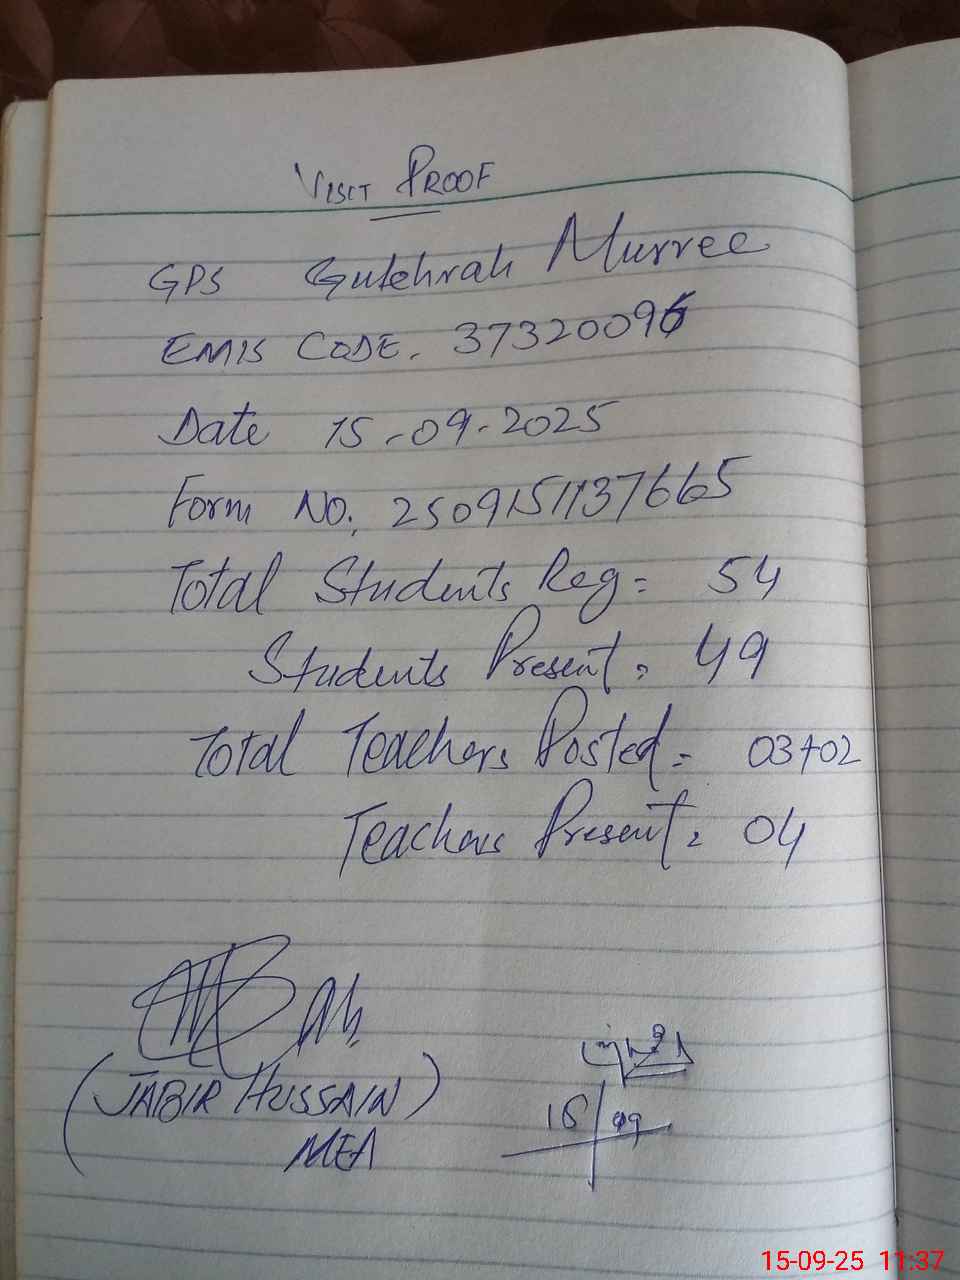 VISIT PROOF
GPS Gulehrah Murree
EMIS CODE. 37320096
Date 15-09-2025
Form NO. 2509151137665
Total Students Reg= 54
Students Present= 49
Total Teachers Posted= 03+02
Teachers Present= 04
(JABIR HUSSAIN)
MEA
15/09
15-09-25 11:37